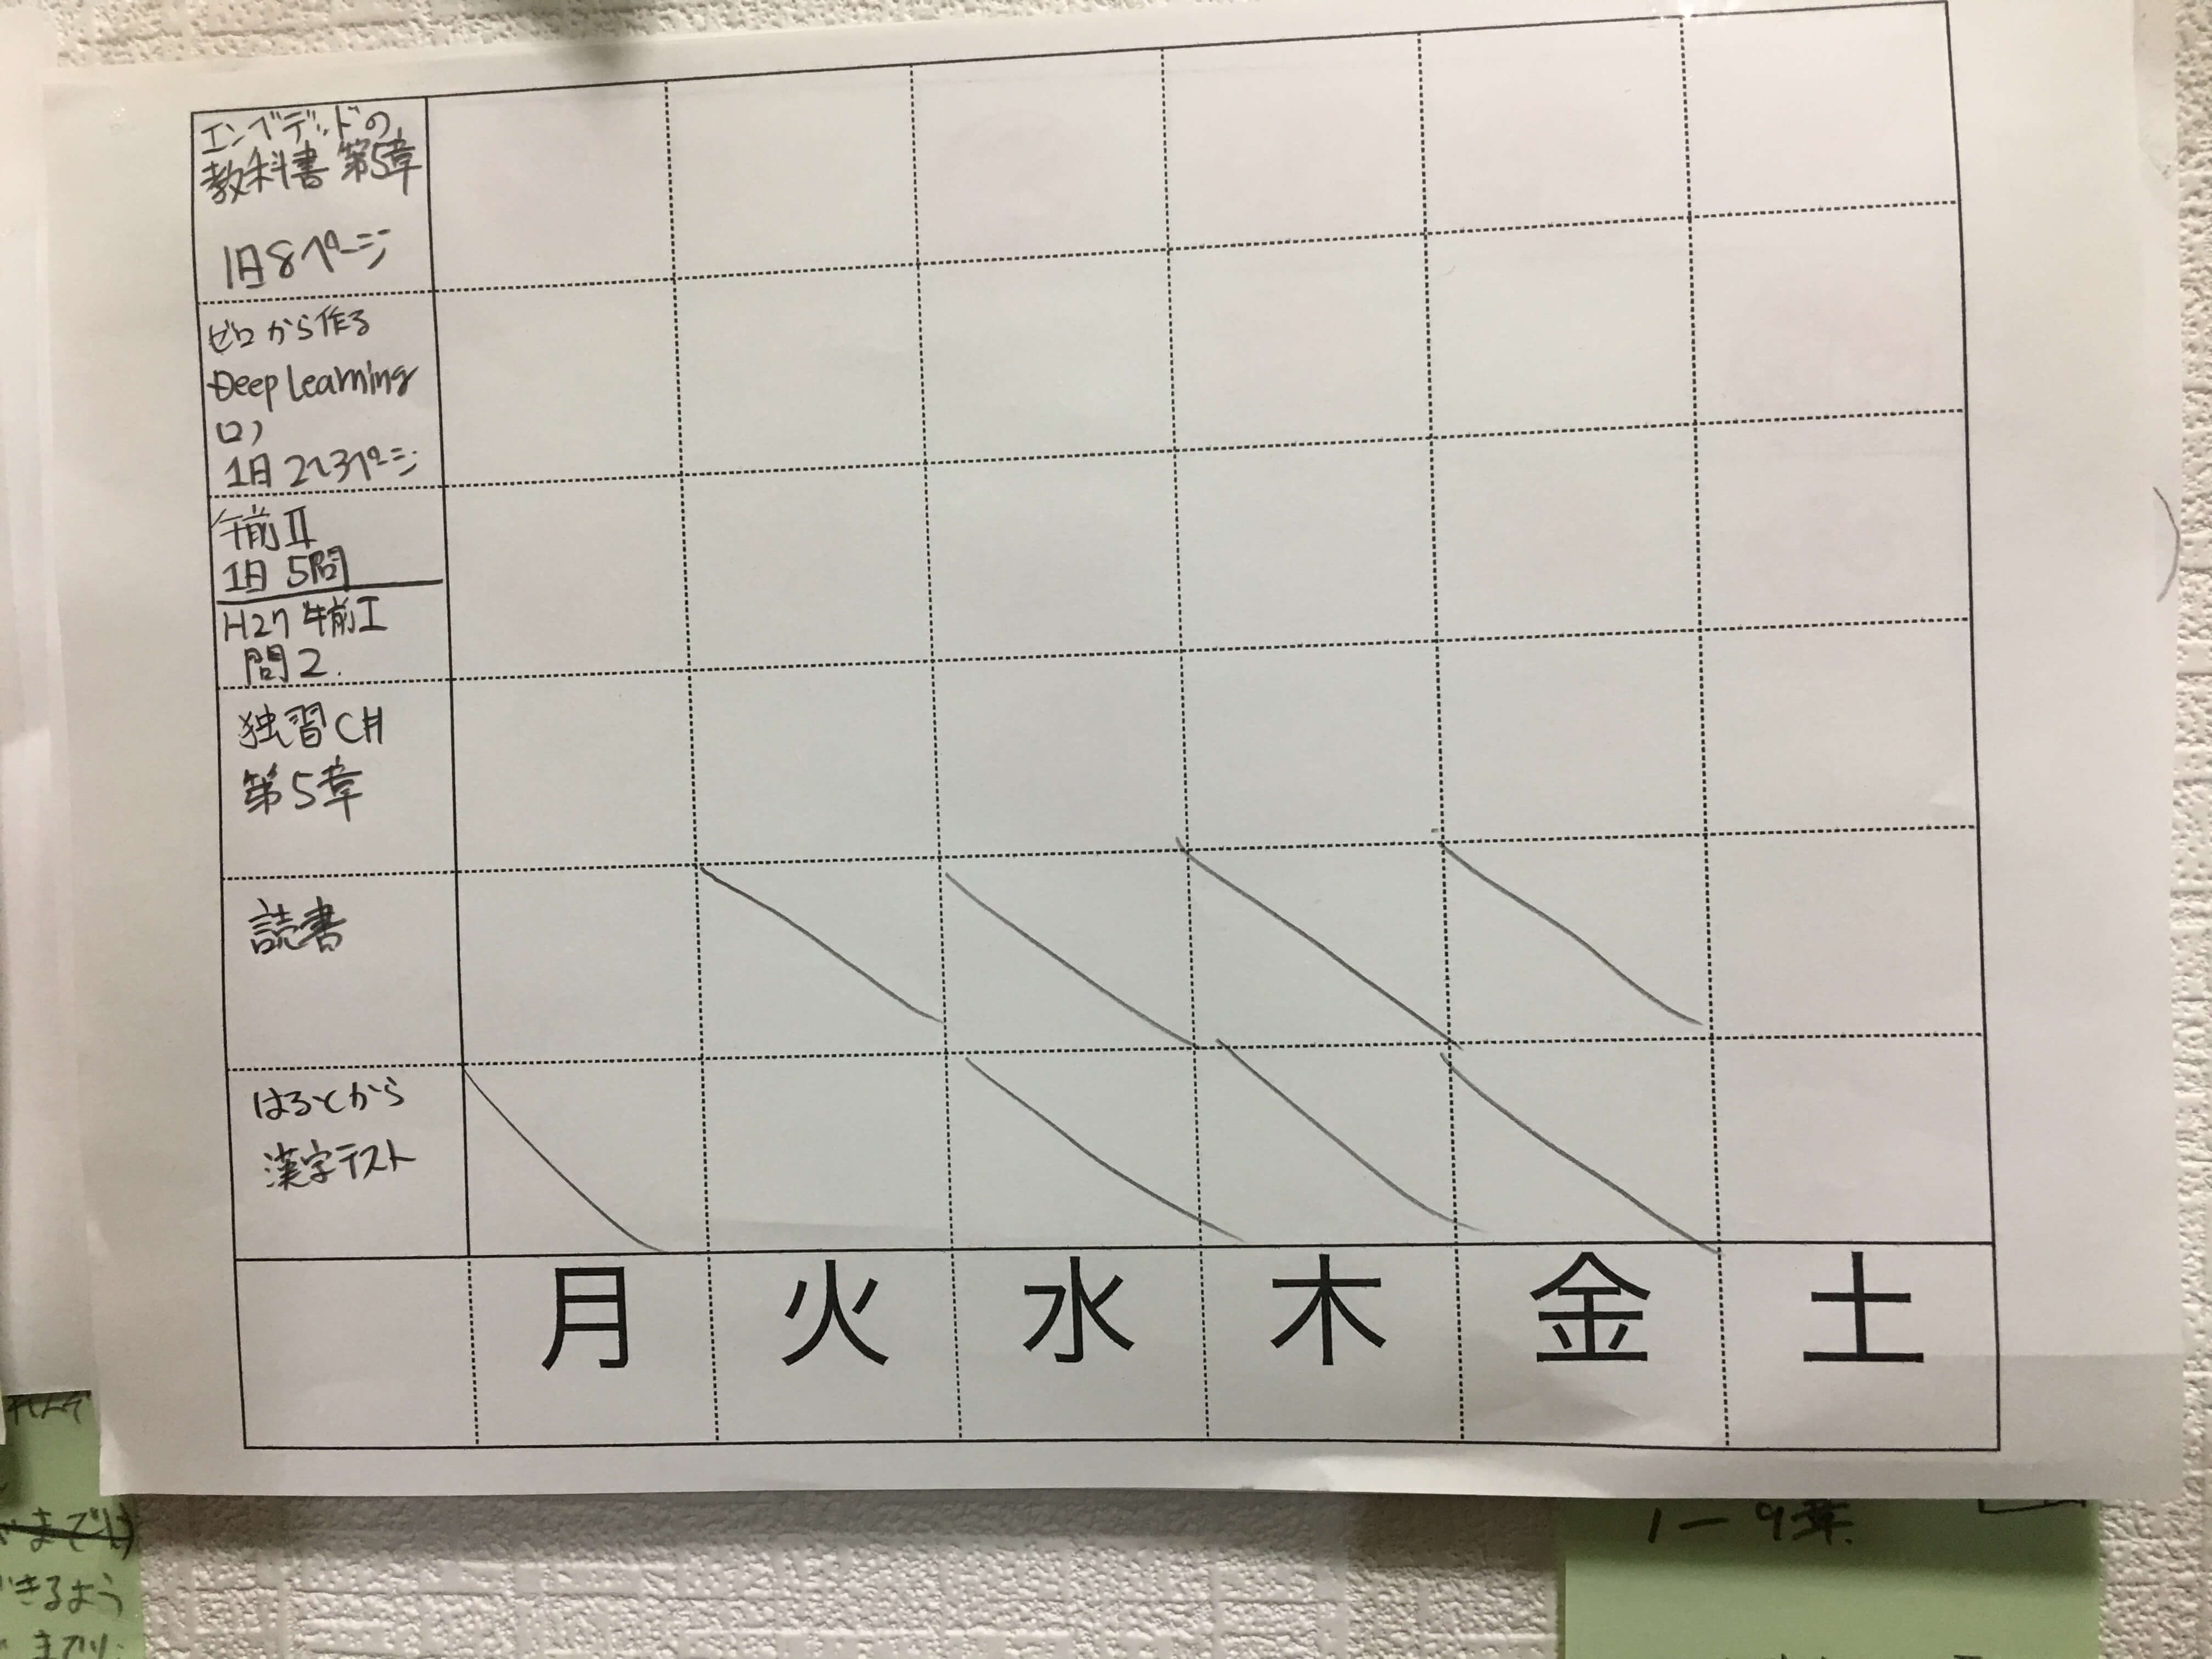 エンベデッドの
教科書 第5章
1日8ページ
ゼロから作る
Deep Learning
1日2~3ページ
午前II
1日 5問
H27 午前I
問2.
独習C#
第5章
読書
はるとから
漢字テスト
月 火 水 木 金 土
きるよう
1-9章